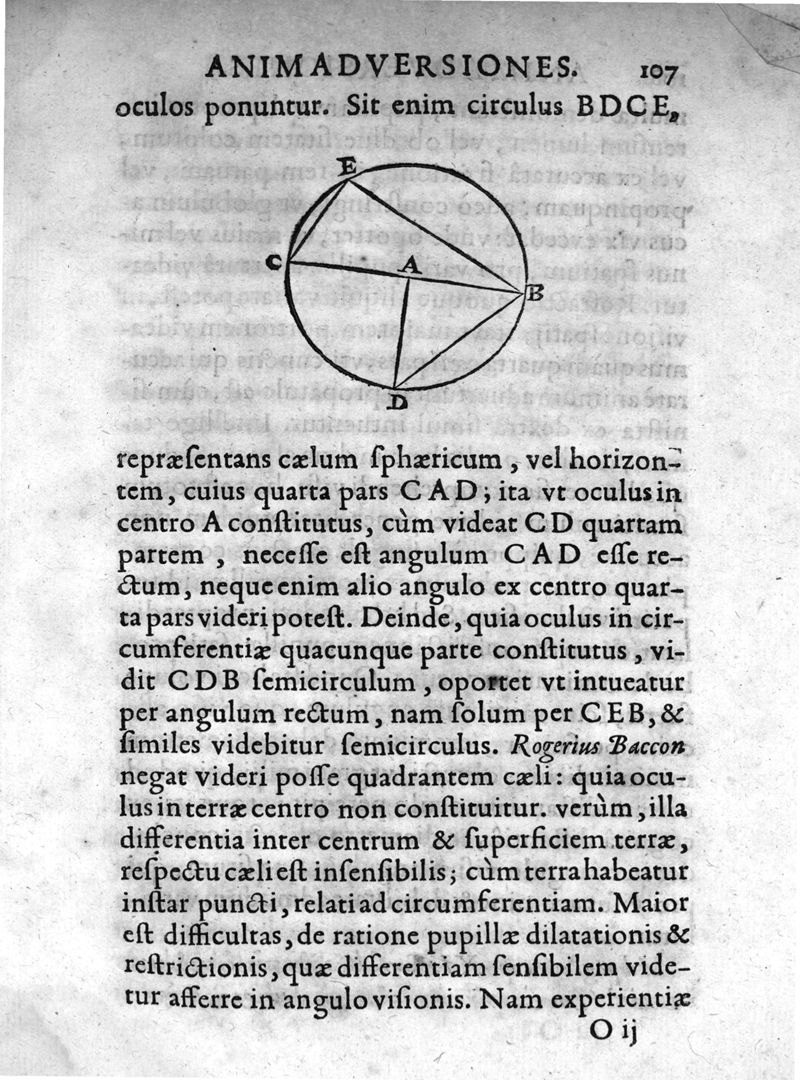 ANIMADVERSIONES. 107
oculos ponuntur. Sit enim circulus BDCE,
E
C
A
B
D
repræſentans cælum ſphæricum, vel horizon-
tem, cuius quarta pars CAD; ita vt oculus in
centro A conſtitutus, cùm videat CD quartam
partem, neceſſe eſt angulum CAD eſſe re-
ctum, neque enim alio angulo ex centro quar-
ta pars videri poteſt. Deinde, quia oculus in cir-
cumferentiæ quacunque parte conſtitutus, vi-
dit CDB ſemicirculum, oportet vt intueatur
per angulum rectum, nam ſolum per CEB, &
ſimiles videbitur ſemicirculus. Rogerius Baccon
negat videri poſſe quadrantem cæli: quia ocu-
lus in terræ centro non conſtituitur. verùm, illa
differentia inter centrum & ſuperficiem terræ,
reſpectu cæli eſt inſenſibilis; cùm terra habeatur
inſtar puncti, relati ad circumferentiam. Maior
eſt difficultas, de ratione pupillæ dilatationis &
reſtrictionis, quæ differentiam ſenſibilem vide-
tur afferre in angulo viſionis. Nam experientiæ
O ij